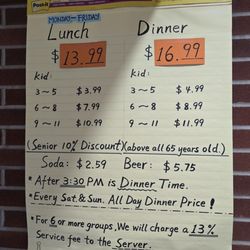 Post-it
MONDAY-FRIDAY
Lunch Dinner
$ 13.99 $ 16.99
kid: kid:
3~5 $3.99 3~5 $4.99
6~8 $7.99 6~8 $8.99
9~11 $10.99 9~11 $11.99
(Senior 10% Discount)(above all 65 years old.)
Soda: $2.59 Beer: $5.75
*After 3:30 PM is Dinner Time.
*Every Sat.& Sun. All Day Dinner Price!
*For 6 or more groups, We will charge a 13%
Service fee to the Server.